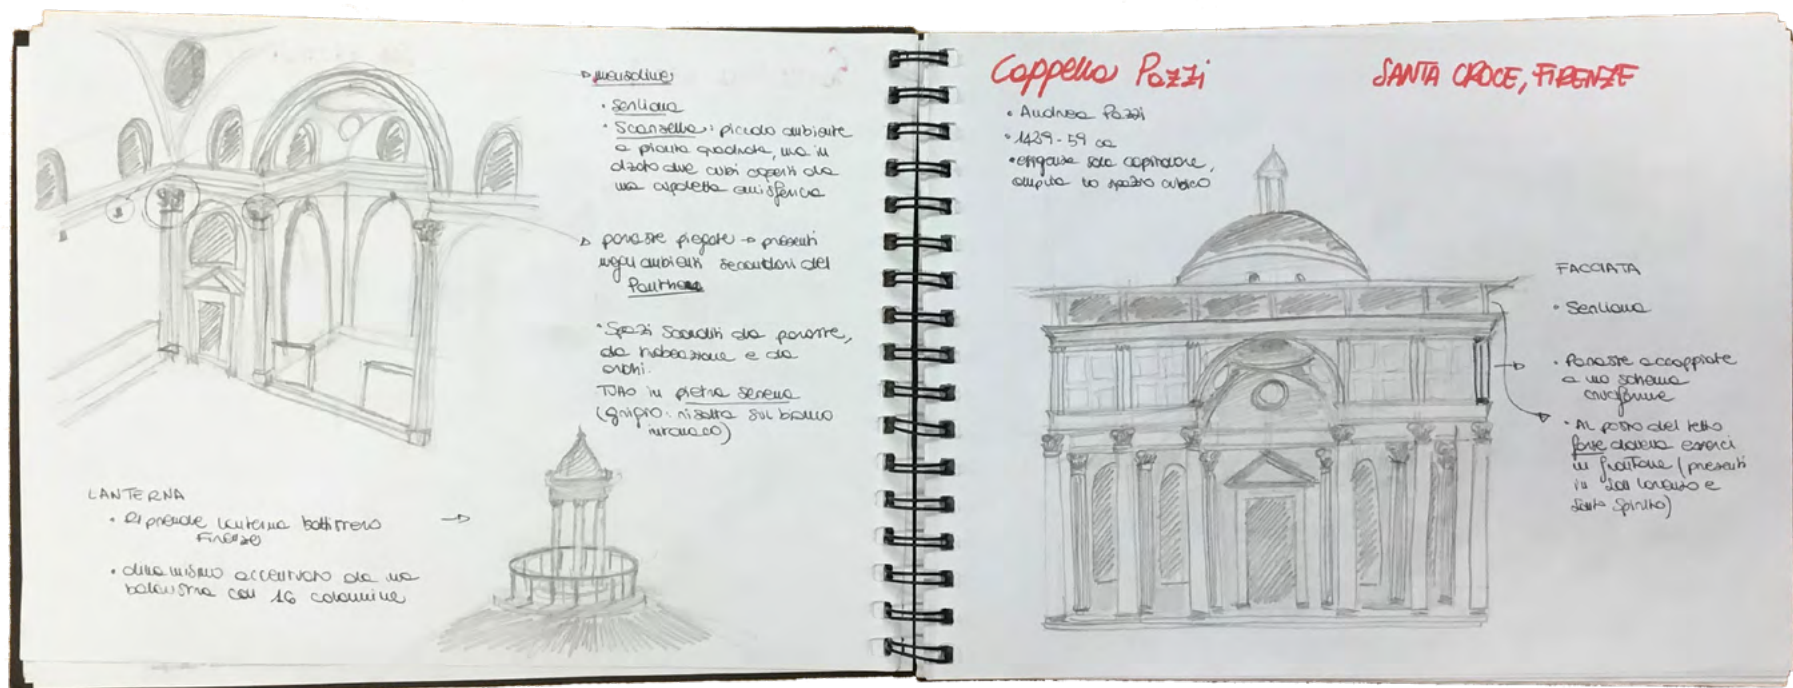 mensoline
• Serliana
• Scarsella: piccolo ambiente
a pianta quadrata, ma in
alzato due cubi coperti da
una cupoletta emisferica
paraste piegate → presenti
negli ambienti secondari del
Pantheon
• Spazi scanditi da paraste,
da trabeazione e da
archi.
Tutto in pietra serena
(grigio: risalta sul bianco
intonaco)
LANTERNA
• Riprende lanterna battistero
Firenze
• dinamismo accentuato da una
balaustra con 16 colonnine
Cappella Pazzi
SANTA CROCE, FIRENZE
• Andrea Pazzi
• 1429-59 ca
• esigenza sala capitolare,
ampio uno spazio cubico
FACCIATA
• Serliana
• Paraste accoppiate
a uno schema
cruciforme
• Al posto del tetto
forse doveva esserci
un frontone (presenti
in San Lorenzo e
Santo Spirito)